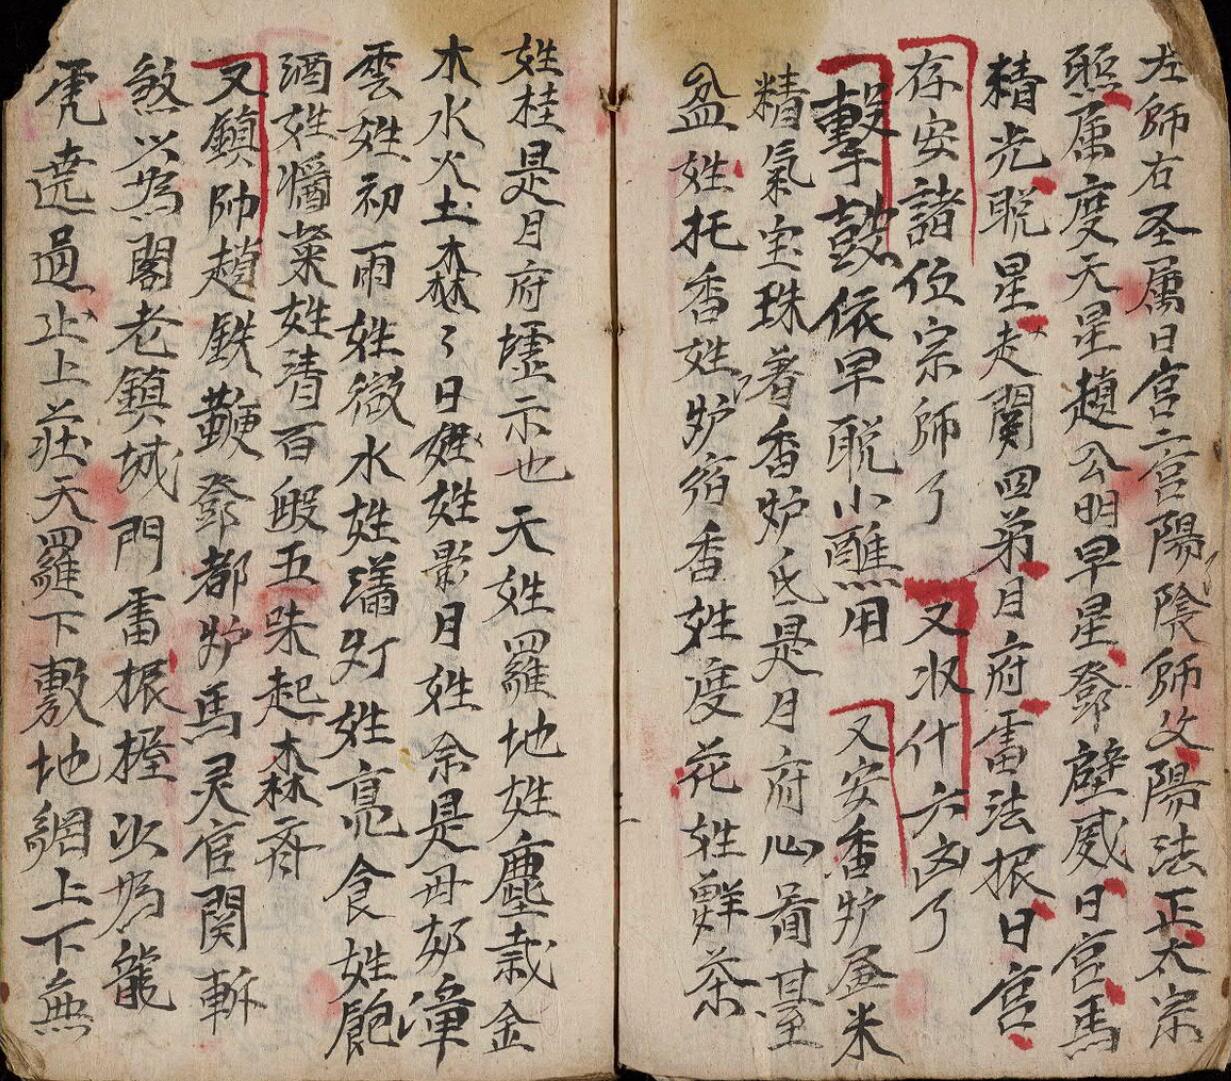 左師右圣属日宫二宫陽陰師父陽法正太宗
照属度天星趙公明早星鄧壁威日宫馬
精光脱星走關四弟月府雷法根日宫
存安諸位宗師了 又收什六凶了
擊鼓依早脱小醮用 又安香炉盆米
精氣宝珠著香炉氏是月府心肖甚至
盆姓托香姓炉宿香姓度花姓鮮茶
姓桂是月府壇示也天姓羅地姓塵栽金
木水火土森了日姓影月姓余是母
雲姓初雨姓微水姓灯姓亮食姓飽
酒姓燗菜姓清百般五味起森斉
又鎮帅趙鉄鞭鄧都炉馬灵官關斬
煞以為閣老鎮城門雷根以為龍
虎遶過止上荘天羅下敷地網上下無